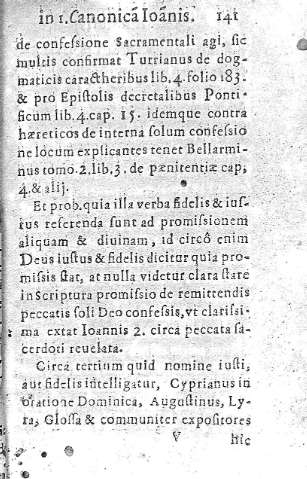 in 1. Canonicā Ioānis. 141
de confessione Sacramentali agi, sic
multis confirmat Turrianus de dog-
maticis caractheribus lib. 4. folio 183.
& pro Epistolis decretalibus Ponti-
ficum lib. 4. cap. 15. idemque contra
hæreticos de interna solum confessio
ne locum explicantes tenet Bellarmi-
nus tomo. 2. lib. 3. de pænitentiæ cap,
4. & alij.
Et prob. quia illa verba fidelis & ius-
tus referenda sunt ad promissionem
aliquam & diuinam, id circò enim
Deus iustus & fidelis dicitur quia pro-
missis stat, at nulla videtur clara stare
in Scriptura promissio de remittendis
peccatis soli Deo confessis, vt clarissi-
ma extat Ioannis 2. circa peccata sa-
cerdoti reuelata.
Circa tertium quid nomine iusti,
aut fidelis intelligatur, Cyprianus in
oratione Dominica, Augustinus, Ly-
ra, Glossa & communiter expositores
V hic